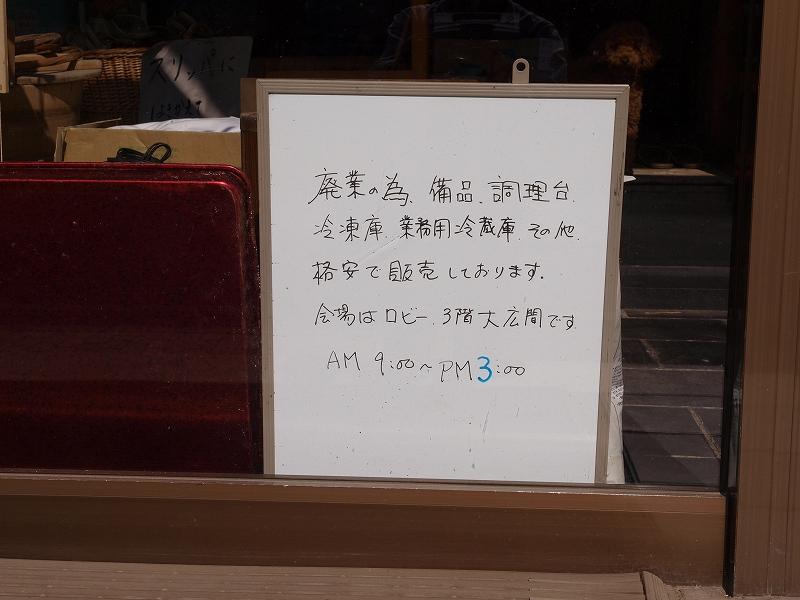 スリッパに
廃業の為、備品、調理台、
冷凍庫、業務用冷蔵庫、その他、
格安で販売しております。
会場はロビー、3階大広間です
AM 9:00~PM3:00